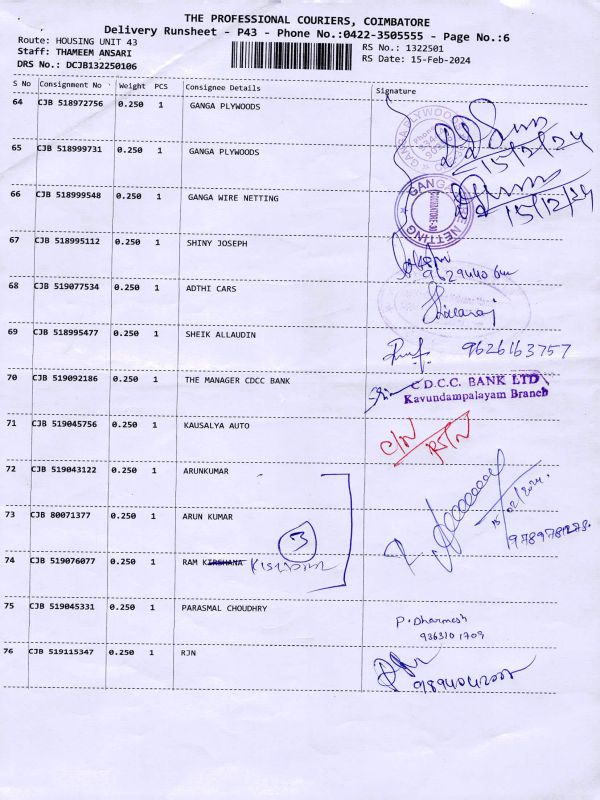 THE PROFESSIONAL COURIERS, COIMBATORE
Delivery Runsheet - P43 - Phone No.:0422-3505555 - Page No.:6
Route: HOUSING UNIT 43
RS No.: 1322501
Staff: THAMEEM ANSARI
RS Date: 15-Feb-2024
DRS No.: DCJB132250106
S No Consignment No Weight PCS Consignee Details Signature
64 CJB 518972756 0.250 1 GANGA PLYWOODS
15/2/24
65 CJB 518999731 0.250 1 GANGA PLYWOODS
66 CJB 518999548 0.250 1 GANGA WIRE NETTING
15/2/24
67 CJB 518995112 0.250 1 SHINY JOSEPH
68 CJB 519077534 0.250 1 ADTHI CARS
69 CJB 518995477 0.250 1 SHEIK ALLAUDIN
9626163757
70 CJB 519092186 0.250 1 THE MANAGER CDCC BANK
C D.C.C. BANK LTD
Kavundampalayam Branch
71 CJB 519045756 0.250 1 KAUSALYA AUTO
C/N
RS/N
72 CJB 519043122 0.250 1 ARUNKUMAR
73 CJB 80071377 0.250 1 ARUN KUMAR
15/02/2024.
9789781278.
3
74 CJB 519076077 0.250 1 RAM KIRSHANA
75 CJB 519045331 0.250 1 PARASMAL CHOUDHRY
P. Dharmesh
936310 1709
76 CJB 519115347 0.250 1 RJN